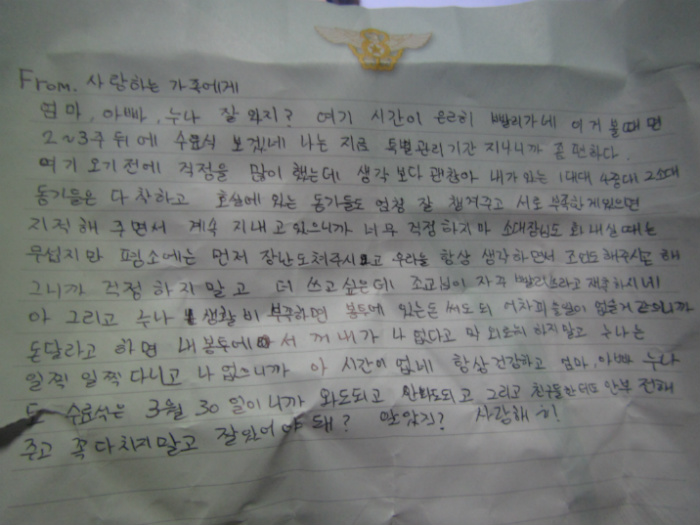 From. 사랑하는 가족에게
엄마, 아빠, 누나 잘 있지? 여기 시간이 은근히 빨리가네 이거 볼때면
2~3주 뒤에 수료식 보겠네 나는 지금 특별관리기간 지나니까 좀 편하다.
여기 오기전에 걱정을 많이 했는데 생각 보다 괜찮아 내가 있는 1대대 4중대 2소대
동기들은 다 착하고 호실에 있는 동기들도 엄청 잘 챙겨주고 서로 부족한게있으면
지적해 주면서 계속 지내고 있으니까 너무 걱정하지마 소대장님도 화내실때는
무섭지만 평소에는 먼저 장난도쳐주시고 우리들 항상 생각하면서 조언도해주시고 해
그니까 걱정 하지말고 더 쓰고싶은데 조교님이 자꾸 빨리쓰라고 재촉하시네
아 그리고 누나 생활비 부족하면 봉투에 있는돈 써도 되 어차피 쓸일이 없을거
돈달라고 하면 내봉투에서 꺼내가 나 없다고 막 외로워 하지말고 누나는
일찍 일찍 다니고 나 없으니까 아 시간이 없네 항상 건강하고 엄마, 아빠 누나
또 수료식은 3월 30일이니까 와도되고 안와도되고 그리고 친구들한테도 안부 전해
주고 꼭 다치지말고 잘있어야 돼? 알았지? 사랑해